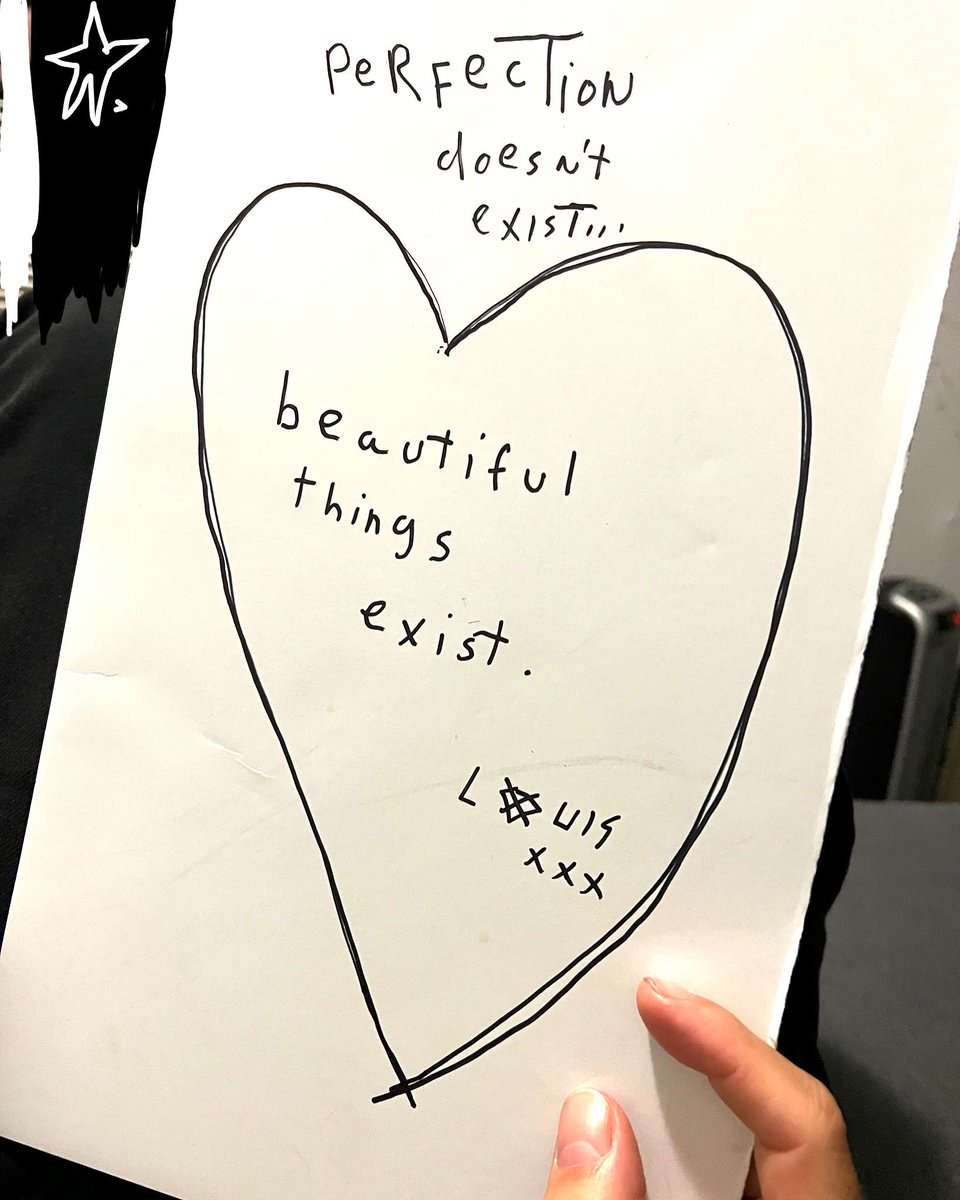 PeRFecTioN
doesn't
exisT...
beautiful
things
exist.
LOUIS
xxx
W.